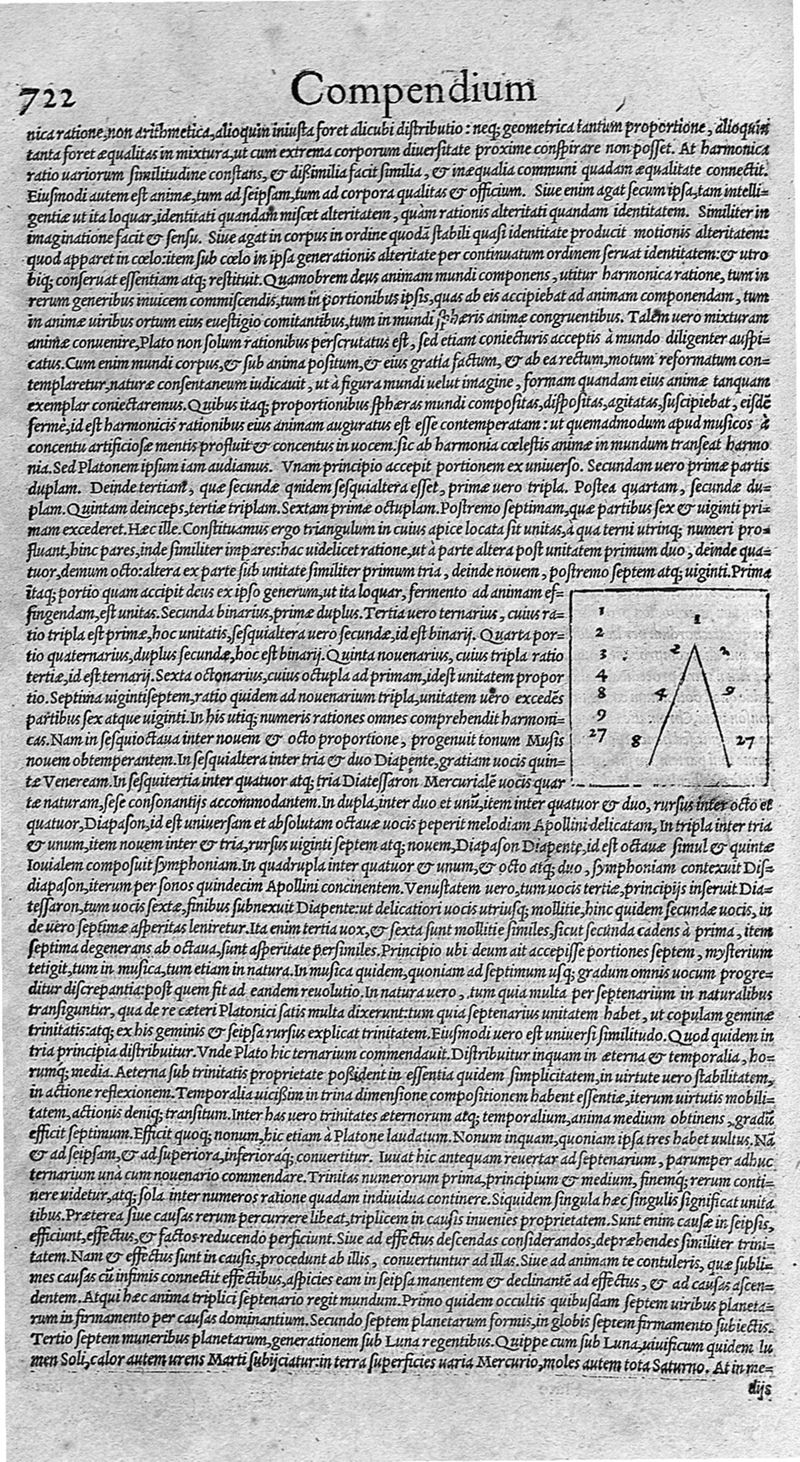 722 Compendium
nica ratione, non arithmetica, alioquin iniusta foret alicubi distributio: neq; geometrica tantum proportione, alioquin
tanta foret æqualitas in mixtura, ut cum extrema corporum diuersitate proxime conspirare non posset. At harmonica
ratio uariorum similitudine constans, & dißimilia facit similia, & inæqualia communi quadam æqualitate connectit.
Eiusmodi autem est animæ, tum ad seipsam, tum ad corpora qualitas & officium. Siue enim agat secum ipsa, tam intelli=
gentiæ ut ita loquar, identitati quandam miscet alteritatem, quàm rationis alteritati quandam identitatem. Similiter in
imaginatione facit & sensu. Siue agat in corpus in ordine quodã stabili quasi identitate producit motionis alteritatem:
quod apparet in cœlo: item sub cœlo in ipsa generationis alteritate per continuatum ordinem seruat identitatem: & utro
biq; conseruat essentiam atq; restituit. Quamobrem deus animam mundi componens, utitur harmonica ratione, tum in
rerum generibus inuicem commiscendis, tum in portionibus ipsis, quas ab eis accipiebat ad animam componendam, tum
in animæ uiribus ortum eius euestigio comitantibus, tum in mundi sphæris animæ congruentibus. Talem uero mixturam
animæ conuenire, Plato non solum rationibus perscrutatus est, sed etiam coniecturis acceptis à mundo diligenter auspi=
catus. Cum enim mundi corpus, & sub anima positum, & eius gratia factum, & ab ea rectum, motum reformatum con=
templaretur, naturæ consentaneum iudicauit, ut à figura mundi uelut imagine, formam quandam eius animæ tanquam
exemplar coniectaremus. Quibus itaq; proportionibus sphæras mundi compositas, dispositas, agitatas, suscipiebat, eisdẽ
fermè, id est harmonicis rationibus eius animam auguratus est esse contemperatam: ut quemadmodum apud musicos à
concentu artificiosæ mentis profluit & concentus in uocem: sic ab harmonia cœlestis animæ in mundum transeat harmo
nia. Sed Platonem ipsum iam audiamus. Vnam principio accepit portionem ex uniuerso. Secundam uero primæ partis
duplam. Deinde tertiam, quæ secundæ qnidem sesquialtera esset, primæ uero tripla. Postea quartam, secundæ du=
plam. Quintam deinceps, tertiæ triplam. Sextam primæ octuplam. Postremo septimam, quæ partibus sex & uiginti pri=
mam excederet. Hæc ille. Constituamus ergo triangulum in cuius apice locata sit unitas, à qua terni utrinq; numeri pro=
fluant, hinc pares, inde similiter impares: hac uidelicet ratione, ut à parte altera post unitatem primum duo, deinde qua=
tuor, demum octo: altera ex parte sub unitate similiter primum tria, deinde nouem, postremo septem atq; uiginti. Prima
itaq; portio quam accipit deus ex ipso generum, ut ita loquar, fermento ad animam ef=
fingendam, est unitas. Secunda binarius, primæ duplus. Tertia uero ternarius, cuius ra=
tio tripla est primæ, hoc unitatis, sesquialtera uero secundæ, id est binarij. Quarta por=
tio quaternarius, duplus secundæ, hoc est binarij. Quinta nouenarius, cuius tripla ratio
tertiæ, id est ternarij. Sexta octonarius, cuius octupla ad primam, idest unitatem propor
tio. Septima uigintiseptem, ratio quidem ad nouenarium tripla, unitatem uero excedẽs
partibus sex atque uiginti. In his utiq; numeris rationes omnes comprehendit harmoni=
cas. Nam in sesquioctaua inter nouem & octo proportione, progenuit tonum Musis
nouem obtemperantem. In sesquialtera inter tria & duo Diapente, gratiam uocis quin=
tæ Veneream. In sesquitertia inter quatuor atq; tria Diatessaron Mercurialẽ uocis quar
1
2
3
4
8
9
27
1
2 2
4 9
8 27
tæ naturam, sese consonantijs accommodantem. In dupla, inter duo et unũ, item inter quatuor & duo, rursus inter octo et
quatuor, Diapason, id est uniuersam et absolutam octauæ uocis peperit melodiam Apollini delicatam, In tripla inter tria
& unum, item nouem inter & tria, rursus uiginti septem atq; nouem, Diapason Diapente, id est octauæ simul & quintæ
Iouialem composuit symphoniam. In quadrupla inter quatuor & unum, & octo atq; duo, symphoniam contexuit Dis=
diapason, iterum per sonos quindecim Apollini concinentem. Venustatem uero, tum uocis tertiæ, principijs inseruit Dia=
tessaron, tum uocis sextæ, finibus subnexuit Diapente: ut delicatiori uocis utriusq; mollitie, hinc quidem secundæ uocis, in
de uero septimæ asperitas leniretur. Ita enim tertia uox, & sexta sunt mollitie similes, sicut secunda cadens à prima, item
septima degenerans ab octaua, sunt asperitate persimiles. Principio ubi deum ait accepisse portiones septem, mysterium
tetigit, tum in musica, tum etiam in natura. In musica quidem, quoniam ad septimum usq; gradum omnis uocum progre=
ditur discrepantia: post quem fit ad eandem reuolutio. In natura uero, tum quia multa per septenarium in naturalibus
transiguntur, qua de re cæteri Platonici satis multa dixerunt: tum quia septenarius unitatem habet, ut copulam geminæ
trinitatis: atq; ex his geminis & seipsa rursus explicat trinitatem. Eiusmodi uero est uniuersi similitudo. Quod quidem in
tria principia distribuitur. Vnde Plato hic ternarium commendauit. Distribuitur inquam in æterna & temporalia, ho=
rumq; media. Aeterna sub trinitatis proprietate poßident in essentia quidem simplicitatem, in uirtute uero stabilitatem,
in actione reflexionem. Temporalia uicißim in trina dimensione compositionem habent essentiæ, iterum uirtutis mobili=
tatem, actionis deniq; transitum. Inter has uero trinitates æternorum atq; temporalium, anima medium obtinens, gradũ
efficit septimum. Efficit quoq; nonum, hic etiam à Platone laudatum. Nonum inquam, quoniam ipsa tres habet uultus. Nã
& ad seipsam, & ad superiora, inferioraq; conuertitur. Iuuat hic antequam reuertar ad septenarium, parumper adhuc
ternarium unà cum nouenario commendare. Trinitas numerorum prima, principium & medium, finemq; rerum conti=
nere uidetur, atq; sola inter numeros ratione quadam indiuidua continere. Siquidem singula hæc singulis significat unita
tibus. Præterea siue causas rerum percurrere libeat, triplicem in causis inuenies proprietatem. Sunt enim causæ in seipsis,
efficiunt, effectus, & factos reducendo perficiunt. Siue ad effectus descendas considerandos, depræhendes similiter trini=
tatem. Nam & effectus sunt in causis, procedunt ab illis, conuertuntur ad illas. Siue ad animam te contuleris, quæ subli=
mes causas cũ infimis connectit effectibus, aspicies eam in seipsa manentem & declinantẽ ad effectus, & ad causas ascen=
dentem. Atqui hæc anima triplici septenario regit mundum. Primo quidem occultis quibusdam septem uiribus planeta=
rum in firmamento per causas dominantium. Secundo septem planetarum formis, in globis septem firmamento subiectis.
Tertio septem muneribus planetarum, generationem sub Luna regentibus. Quippe cum sub Luna, uiuificum quidem lu
men Soli, calor autem urens Marti subijciatur: in terra superficies uaria Mercurio, moles autem tota Saturno. At in me=
dijs